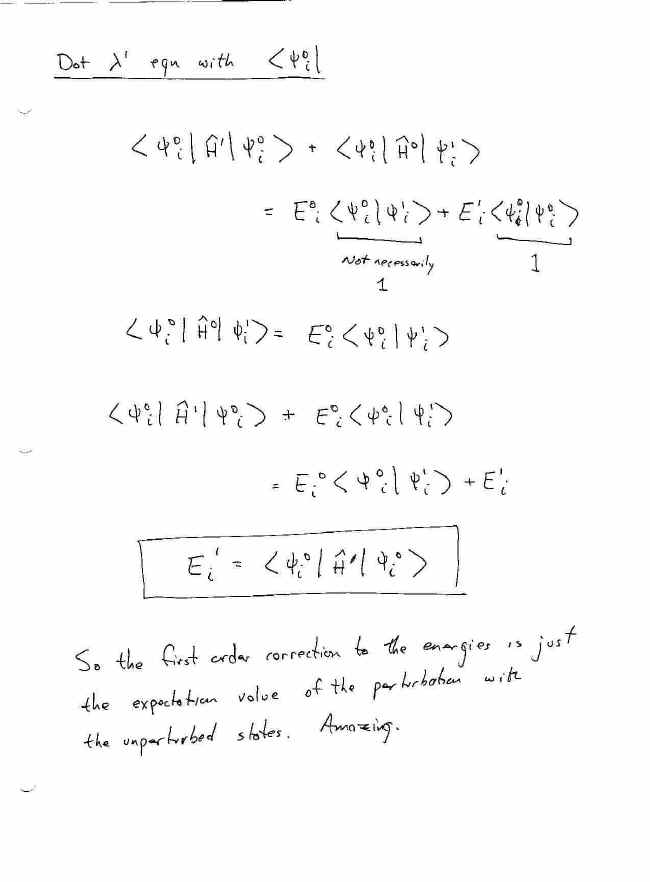 Dot λ' eqn with <ψᵢ⁰|
<ψᵢ⁰|Ĥ'|ψᵢ⁰> + <ψᵢ⁰|Ĥ⁰|ψᵢ'>
= Eᵢ⁰<ψᵢ⁰|ψᵢ'> + Eᵢ'<ψᵢ⁰|ψᵢ⁰>
Not necessarily 1
1
<ψᵢ⁰|Ĥ⁰|ψᵢ'> = Eᵢ⁰<ψᵢ⁰|ψᵢ'>
<ψᵢ⁰|Ĥ'|ψᵢ⁰> + Eᵢ⁰<ψᵢ⁰|ψᵢ'>
= Eᵢ⁰<ψᵢ⁰|ψᵢ'> + Eᵢ'
Eᵢ' = <ψᵢ⁰|Ĥ'|ψᵢ⁰>
So the first order correction to the energies is just
the expectation value of the perturbation with
the unperturbed states. Amazing.